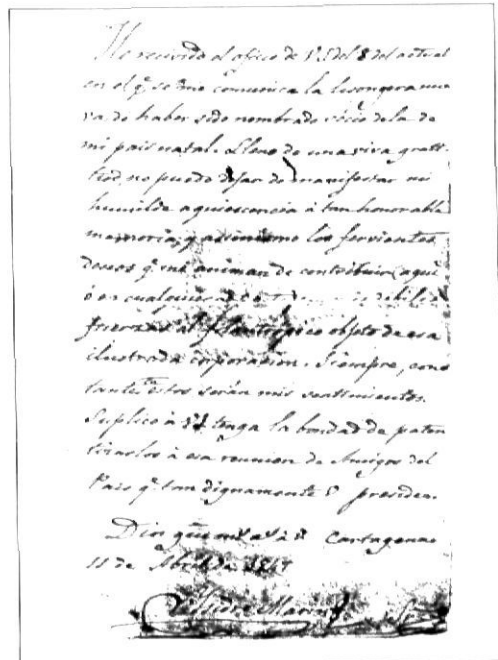 He recivido el oficio de V.S. del 8 del actual
en el q. se me comunica la lisongera nue
va de haber sido nombrado sócio de la de
mi pais natal. Lleno de una viva grati-
tud, no puedo dejar de manifestar mi
humilde aquiescencia á tan honorable
memoria, y asimismo los fervientes
deseos q. me animan de contribuir, aqui
ó en cualquiera debiles
fuerzas al filantrópico objeto de esa
ilustrada corporacion. Siempre, cons
tantemte. estos serán mis sentimientos.
Suplico á V.S. tenga la bondad de paten
tizarlos á esa reunion de Amigos del
Pais q. tan dignamente V. preside.
Dios gūe á V. Cartagena
11 de Abril de
Isidro